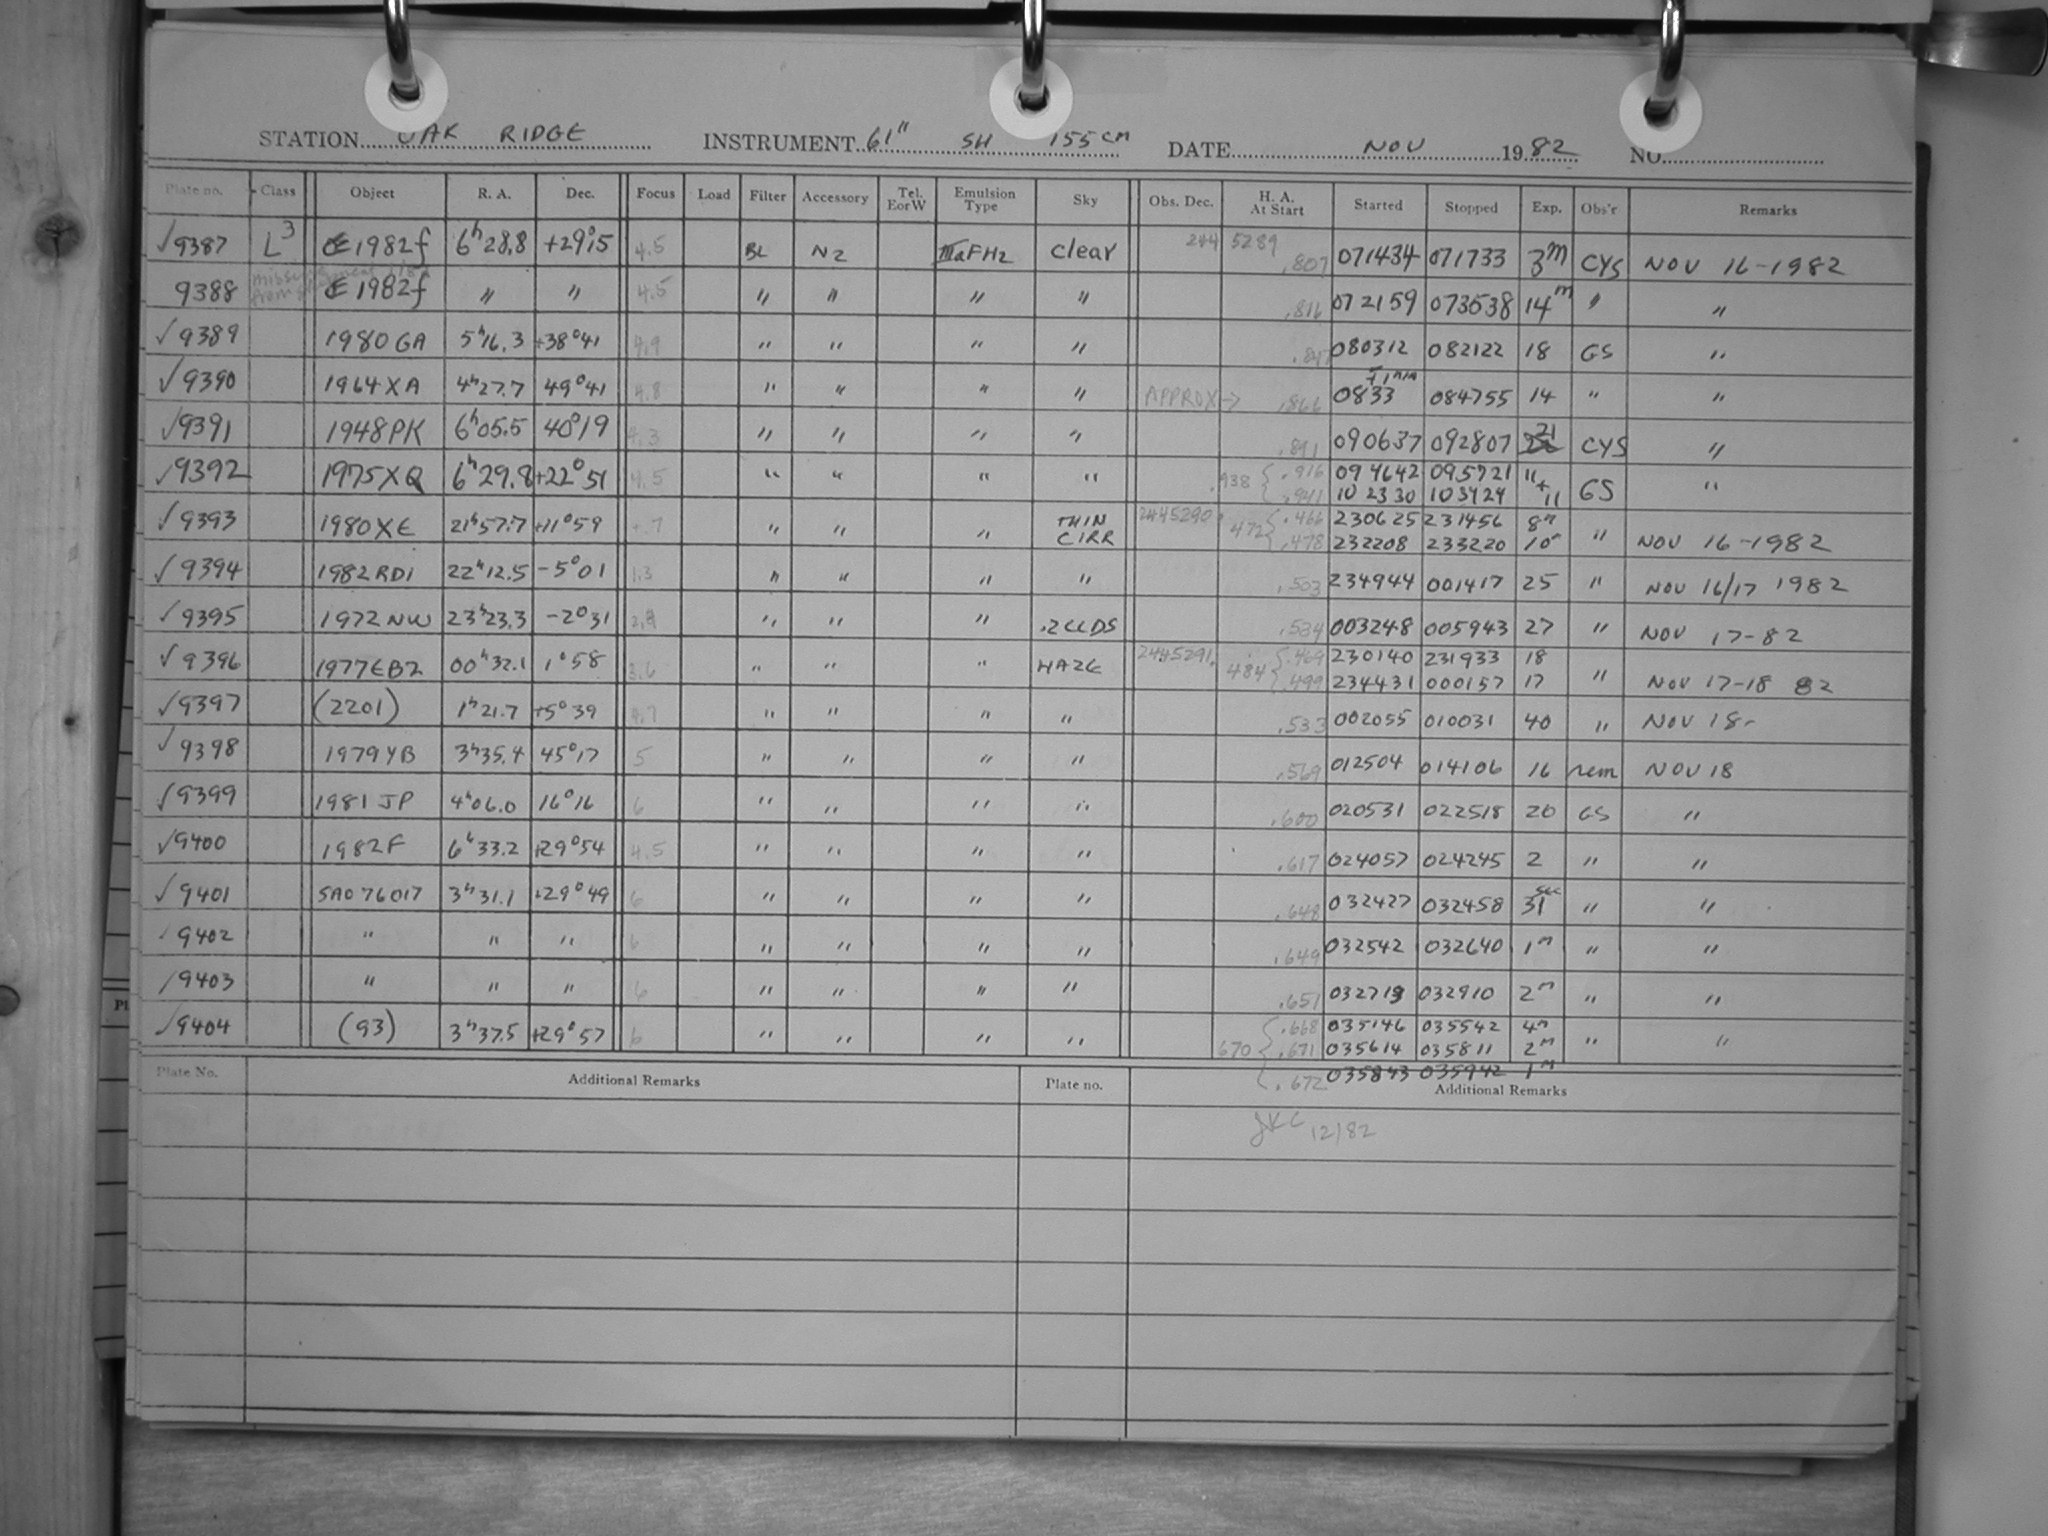 STATION OAK RIDGE INSTRUMENT 61" SH 155cm DATE NOV 1982 NO.
Plate no. Class Object R. A. Dec. Focus Load Filter Accessory Tel. E or W Emulsion Type Sky Obs. Dec. H. A. At Start Started Stopped Exp. Obs'r Remarks
√9387 L3 1982f 6h28.8 +29°.5 4.5 BL N2 IIIaFH2 clear 244 5289 .807 071434 071733 3m CYS NOV 16-1982
9388 1982f " " 4.5 " " " " .816 072159 073538 14m " "
√9389 1980 GA 5h16.3 +38°41 4.9 " " " " .847 080312 082122 18 GS "
√9390 1964 XA 4h27.7 49°41 4.8 " " " " APPROX → .866 0833 ±1min 084755 14 " "
√9391 1948 PK 6h05.5 40°19 4.3 " " " " .891 090637 092807 21 CYS "
√9392 1975 XQ 6h29.8 +22°51 4.5 " " " " .938 { .916 094642 095721 11 + GS "
.941 102330 103424 11
√9393 1980 XE 21h57.7 +11°59 +.7 " " " THIN CIRR 2445290. .472 { .466 230625 231456 8m " NOV 16-1982
.478 232208 233220 10m
√9394 1982 RD1 22h12.5 -5°01 1.3 " " " " .503 234944 001417 25 " NOV 16/17 1982
√9395 1972 NW 23h23.3 -2°31 " " " .2 CLDS .534 003248 005943 27 " NOV 17-82
√9396 1977 EB2 00h32.1 1°58 3.6 " " " HAZE 2445291. .484 { .469 230140 231933 18 " NOV 17-18 82
.499 234431 000157 17
√9397 (2201) 1h21.7 +5°39 4.7 " " " " .533 002055 010031 40 " NOV 18-
√9398 1979 YB 3h35.4 45°17 5 " " " " .569 012504 014106 16 rem NOV 18
√9399 1981 JP 4h06.0 16°16 6 " " " " .600 020531 022518 20 GS "
√9400 1982F 6h33.2 +29°54 4.5 " " " " .617 024057 024245 2 " "
√9401 SAO 76017 3h31.1 +29°49 6 " " " " .648 032427 032458 31sec " "
9402 " " " 6 " " " " .649 032542 032640 1m " "
√9403 " " " 6 " " " " .651 032719 032910 2m " "
√9404 (93) 3h37.5 +29°57 6 " " " " .670 { .668 035146 035542 4m " "
.671 035614 035811 2m
.672 035843 035942 1m
Plate No. Additional Remarks Plate no. Additional Remarks
JKC 12/82